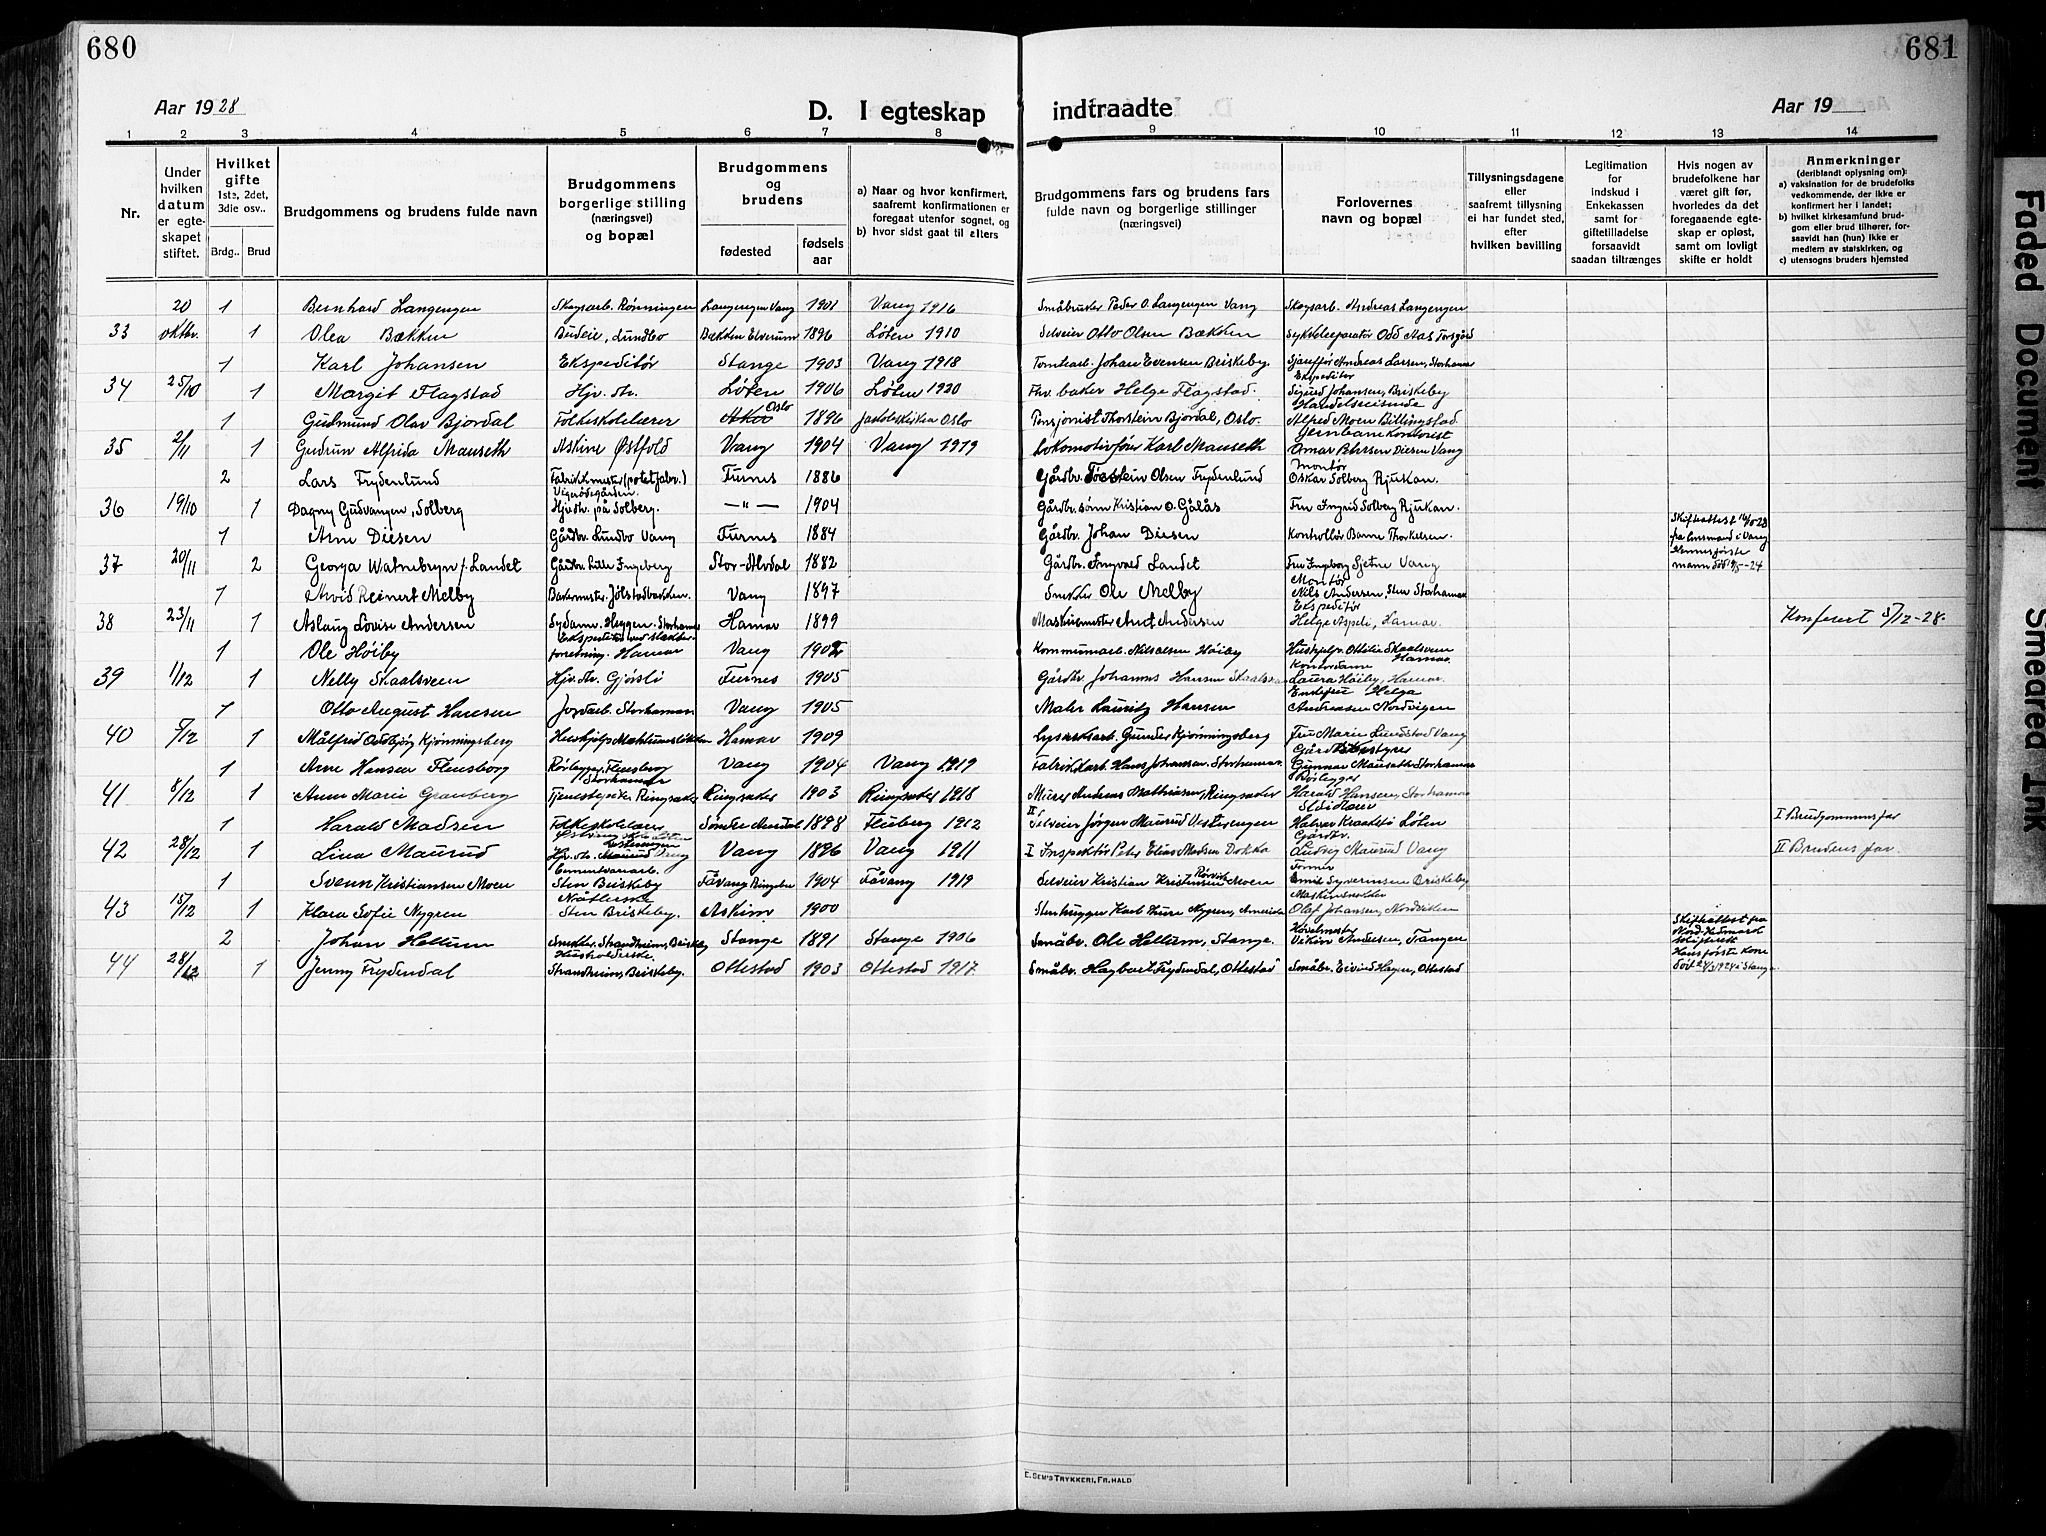 680
Aar 1928
D. I egteskap
1 2 3 4 5 6 7 8
Nr.
Under hvilken datum er egte-skapet stiftet.
Hvilket gifte 1ste, 2det, 3die osv..
Brdg.. Brud
Brudgommens og brudens fulde navn
Brudgommens borgerlige stilling (næringsvei) og bopæl
Brudgommens og brudens
fødested
fødsels aar
a) Naar og hvor konfirmert, saafremt konfirmationen er foregaat utenfor sognet, og
b) hvor sidst gaat til alters
20 1 Bernhard Langengen Skogsarb. Rønningen Langengen Vang 1901 Vang 1916
33 oktbr. 1 Olea Bækken Budeie, Lundbo Bækken Elverum 1896 Løten 1910
1 Karl Johansen Ekspeditør Stange 1903 Vang 1918
34 25/10 1 Margit Flagstad Hj. str. Løten 1906 Løten 1920
1 Gudmund Olav Bjordal Folkeskolelærer Oslo 1896 Jakobskirken Oslo
35 2/11 1 Gudrun Alfrida Mauseth Askim Østfold Vang 1904 Vang 1919
2 Lars Frydenlund Fabrikkmester (potetfabr.) Furnes 1886
36 19/10 1 Dagny Gudvangen, Solberg Hjv. str. på Solberg. —"— 1904
1 Arne Diesen Gårdbr. Lundbo Vang Furnes 1884
37 20/11 2 Georga Watnebryn f. Landet Gårdbr. Lille Ingeberg Stor-Alvdal 1882
1 Arvid Reinert Melby Bakermester, Jølstadbakken. Vang 1897
38 23/11 1 Aslaug Lovise Andersen Sydame. Heggen. Storhamar Hamar 1899
1 Ole Høiby forretning. Hamar Vang 1902
39 1/12 1 Nelly Skaalsveen Hjv. str. Gjørsli Furnes 1905
1 Otto August Hansen Jordarb. Storhamar Vang 1905
40 5/12 1 Målfrid Oddbjørg Kjønningsberg Hamar 1909
1 Arne Hansen Flensborg Rørlegger, Flensberg Storhamar Vang 1904 Vang 1919
41 8/12 1 Anna Marie Granberg Tjenestepike Ringsaker Ringsaker 1903 Ringsaker 1918
1 Harald Madsen Folkeskolelærer Søndre Aurdal 1898 Fluberg 1912
42 28/12 1 Lina Maurud Hjv. str. Maurud Vang Vang 1896 Vang 1911
1 Svenn Kristiansen Moen Cementvarearb. Sten Briskeby Fåvang Ringebu 1904 Fåvang 1919
43 15/12 1 Klara Sofie Nygren Sten Briskeby. Askim 1900
2 Johan Hellum Snekker. Strandheim, Briskeby Stange 1891 Stange 1906
44 28/12 1 Jenny Frydendal Husholderske. Strandheim, Briskeby. Ottestad 1903 Ottestad 1917.
681
indtraadte
Aar 19
9 10 11 12 13 14
Brudgommens fars og brudens fars fulde navn og borgerlige stillinger (næringsvei)
Forlovernes navn og bopæl
Tillysningsdagene eller saafremt tillysning ei har fundet sted, efter hvilken bevilling
Legitimation for indskud i Enkekassen samt for giftetilladelse forsaavidt saadan tiltrænges
Hvis nogen av brudefolkene har været gift før, hvorledes da det foregaaende egte-skap er opløst, samt om lovligt skifte er holdt
Anmerkninger (deriblandt oplysning om):
a) vaksination for de brudefolks vedkommende, der ikke er konfirmert her i landet;
b) hvilket kirkesamfund brud-gom eller brud tilhører, for-saavidt han (hun) ikke er medlem av statskirken, og
c) utensogns bruders hjemsted
Småbruker Peder O. Langengen Vang Skogsarb. Andreas Langengen
Selveier Otto Olsen Bækken Sykkelreparatør Odd Aas Torsgård
Tomtearb. Johan Evensen Briskeby Sjauffør Andreas Larsen, Storhamar
Fhv. baker Helge Flagstad. Ekspeditør Sigurd Johansen, Briskeby
Pensjonist Thorstein Bjordal, Oslo. Handelsreisende Alfred Moen Billingstad.
Lokomotivfører Karl Mauseth Jernbanekontorist Omar Petersen Diesen Vang
Gårdbr. Torstein Olsen Frydenlund Montør Oskar Solberg Rjukan.
Gårdbr. sønn Kristian O. Gålås Fru Ingrid Solberg Rjukan.
Gårdbr. Johan Diesen Kontrollør Barne Thorkelsen. Skifteattest 16/10-28 fra lensmand i Vang
Gårdbr. Ingvald Landet Fru Ingeborg Sjetne Vang
Snekker Ole Melby Montør Nils Andersen, Sten Storhamar
Maskinmester Aug. Andersen Ekspeditør Helge Aspeli, Hamar. Konferert 5/12-28.
Kommunearb. Nils Olsen Høiby Hushjelp. Ottilie Skaalsveen
Gårdbr. Johannes Hansen Skaalsveen Kontordame Laura Høiby, Hamar.
Maler Lauritz Hansen Enkefru Helga Andreasen Nordvigen
Gunder Kjønningsberg Fru Marie Lundstad Vang
Fabrikkarb. Hans Johansen. Storhamar. Gunnar Mauseth Storhamar
Murer Andreas Mathiasen, Ringsaker Rørlegger Harald Hansen, Storhamar
II Selveier Jørgen Maurud Vesterengen Løten I Brudgommens far
I Inspektør Peter Elias Madsen Dokka Gårdbr. Ludvig Maurud Vang II Brudens far.
Selveier Kristian Kristensen Moen Emil Syversen Briskeby
Stenhugger Karl Ture Nygren, Amerika Olaf Johansen, Nordviken
Småbr. Ole Hellum, Stange. Andersen, Tangen Skifteattest fra Nord-Hedmark skifterett
Småbr. Hagbart Frydendal, Ottestad Småbr. Eivind Hagen, Ottestad Hans første kone død 2/3 1924 i Stange
E. SEM'S TRYKKERI, FR.HALD
Faded Document
Smeared Ink